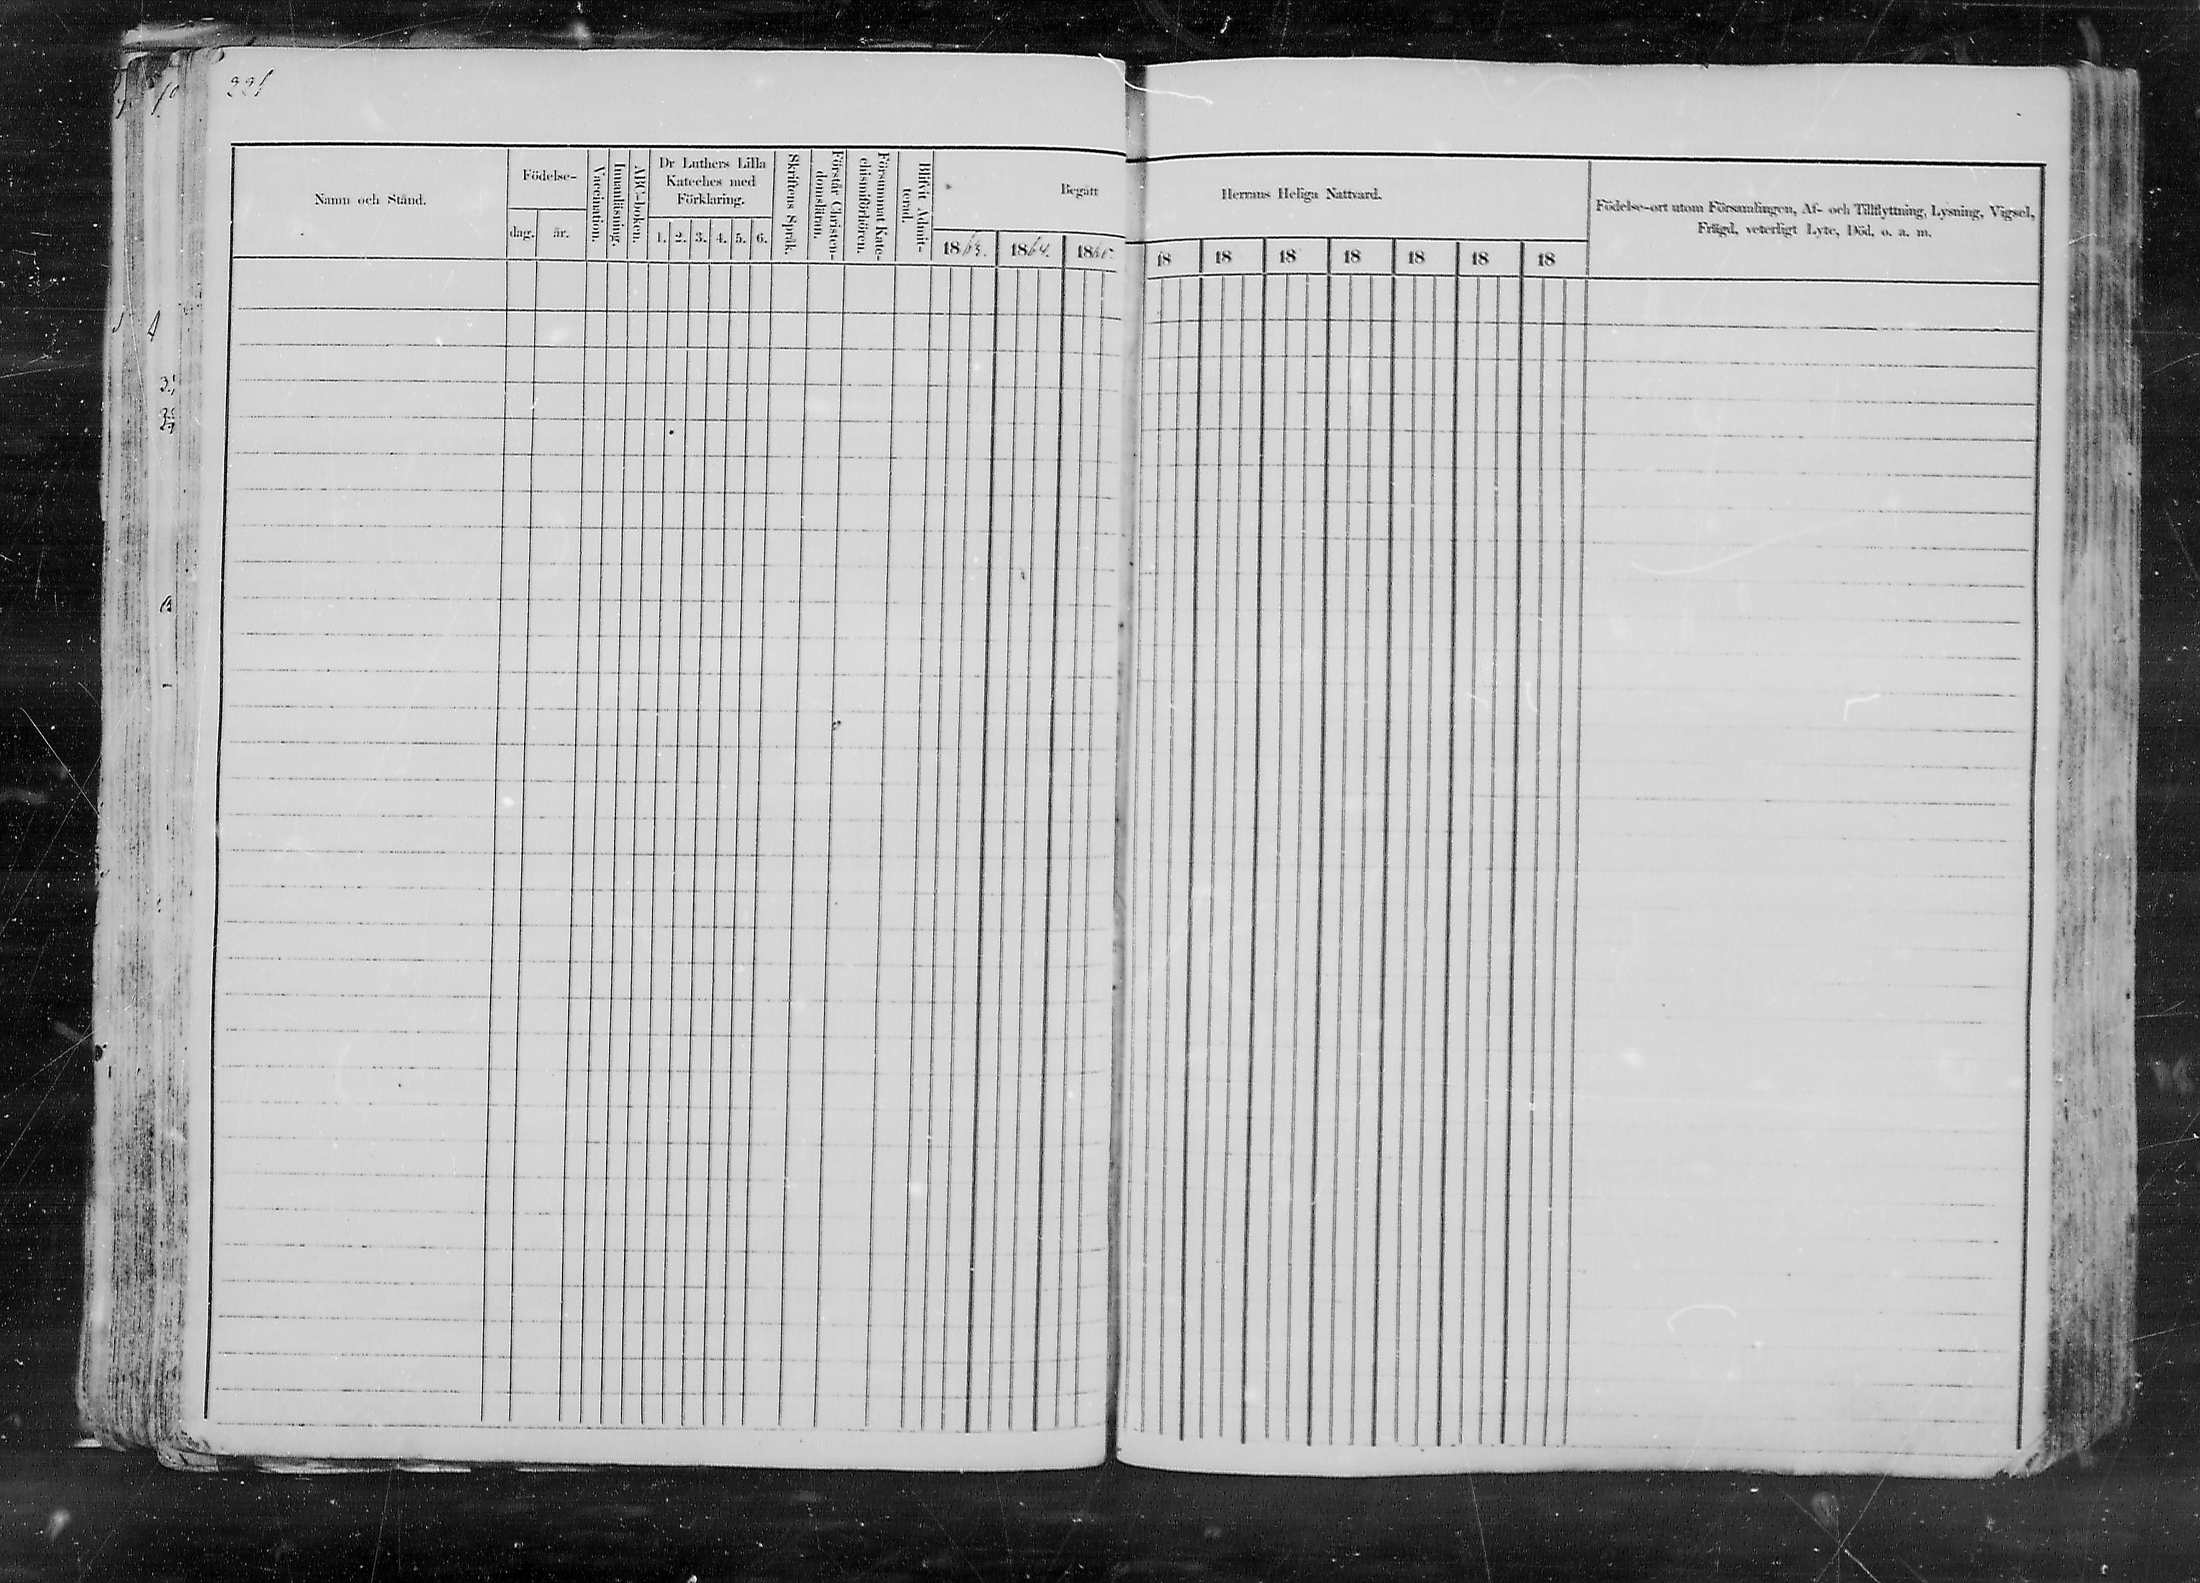 221
Namn och Stånd.
Födelse-
dag.
år.
Vaccination.
Innanläsning.
ABC-boken.
Dr Luthers Lilla
Kateches med
Förklaring.
1. 2. 3. 4. 5. 6.
Skriftens Språk.
Förstår Christen-
domsläran.
Försummat Kate-
chismiförhören.
Blifvit Admit-
terad.
Begått Herrans Heliga Nattvard.
1863. 1864. 1865. 18 18 18 18 18 18 18
Födelse-ort utom Församlingen, Af- och Tillflyttning, Lysning, Vigsel,
Frägd, veterligt Lyte, Död, o. a. m.